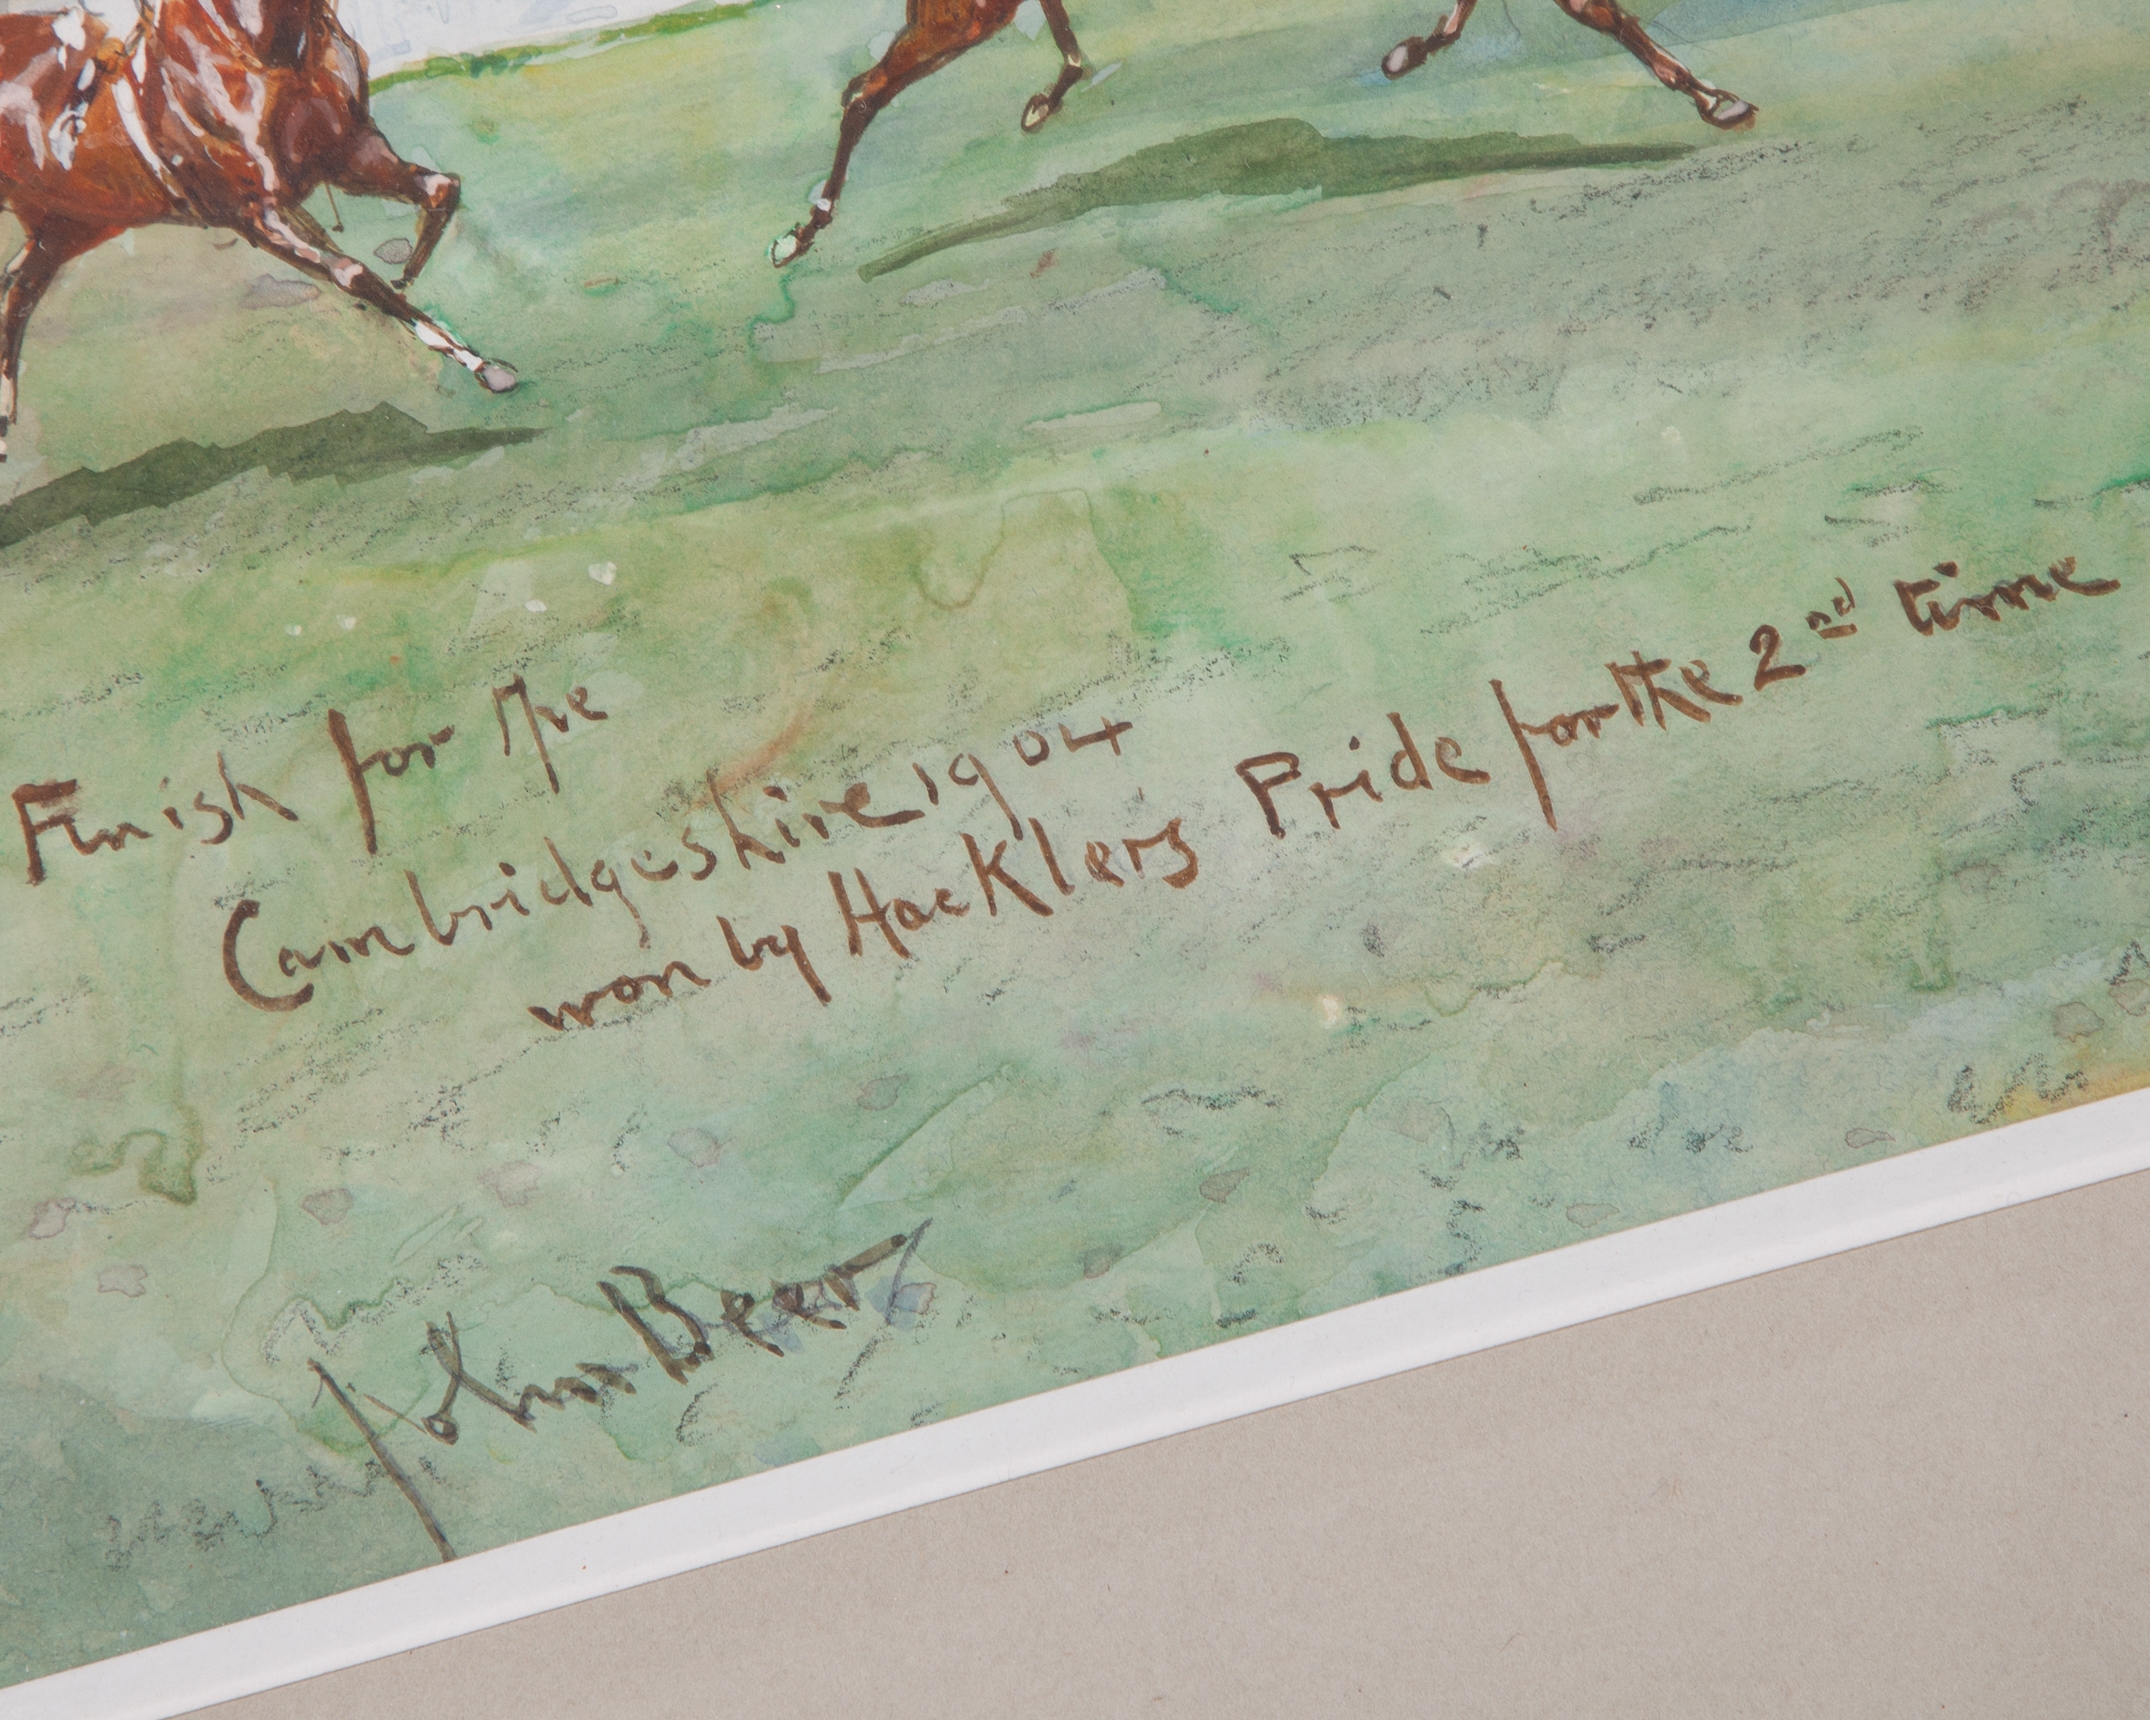 Finish for the
Cambridgeshire 1904
won by Hacklers Pride for the 2nd time
John Beer